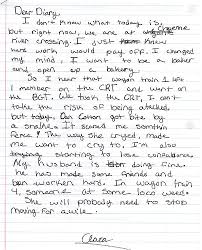 Dear Diary,
I don't know what today is,
but right now, we are at
river crossing. I just knew
here work would pay off. I changed
my mind, I want to be a baker
and open up a bakery.
So I hear that wagon train 1 left
1 member on the CRT and went on
the BGT. We took the CRT, I can't
take the risk of being attacked,
but today, Cotton got bite by
a snake. It scared me somthin
fierce! The way she cryed, made
me want to cry to, I'm also
starting to lose confidance.
My husband is doing fine.
he has made some friends and
ben worken hard. In wagon train
4, someone at some loco weed.
She will proboly need to stop
moving for awile.
Clara